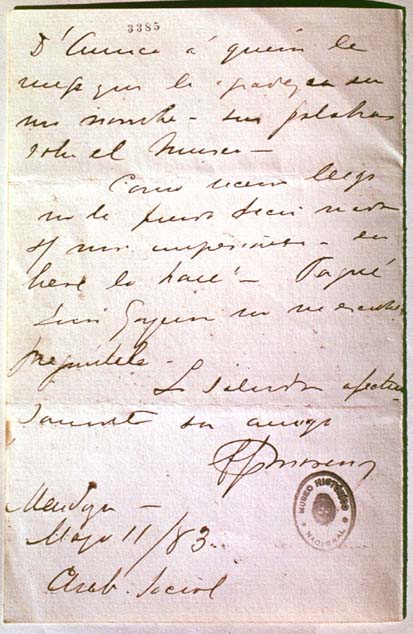 3385
D' Amico á quien le
ruego que le agradezca en
mi nombre - sus palabras
sobre el Museo -
Como recien llego
no le puedo decir nada
de mis impresiones - en
breve lo haré - Porqué
Luis no me escribe
pregúntele -
Le saluda afectuo-
samente su amigo
FPMoreno
Mendoza -
Mayo 11/83
Club Social
MUSEO HISTÓRICO
NACIONAL